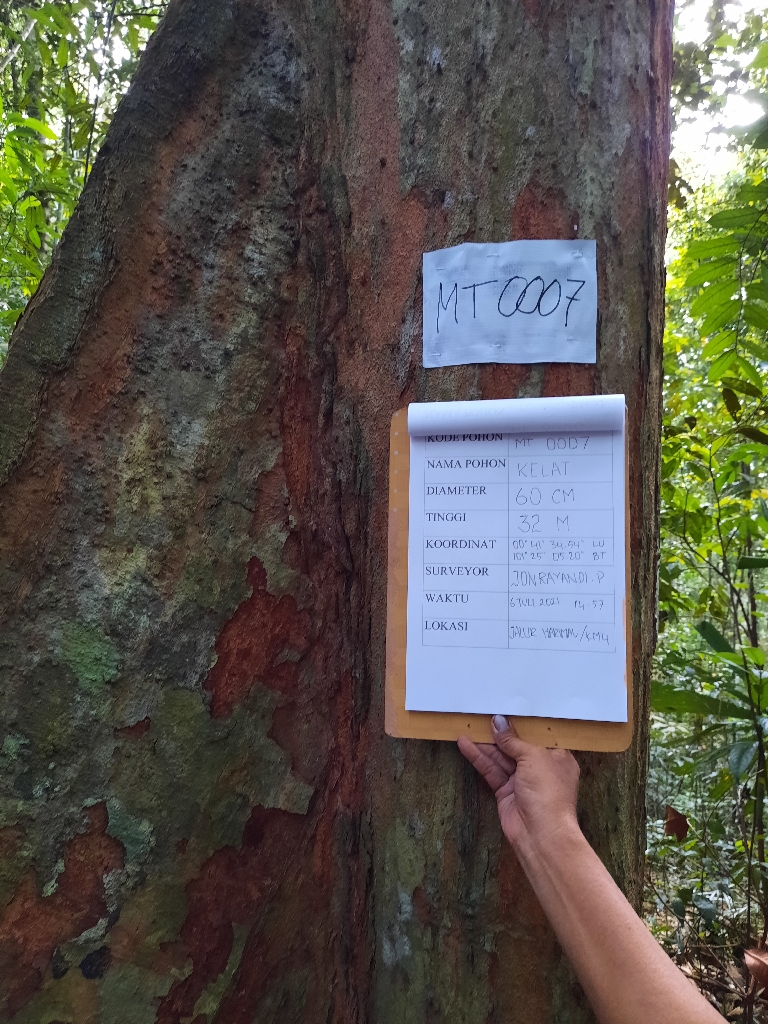 MT 0007
KODE POHON MT 0007
NAMA POHON KELAT
DIAMETER 60 CM
TINGGI 32 M
KOORDINAT 00° 41' 34.54" LU
101° 25' 05.20" BT
SURVEYOR JONRAYANDI.P
WAKTU 6 JULI 2021 14.57
LOKASI JALUR HARIMAU/KM4